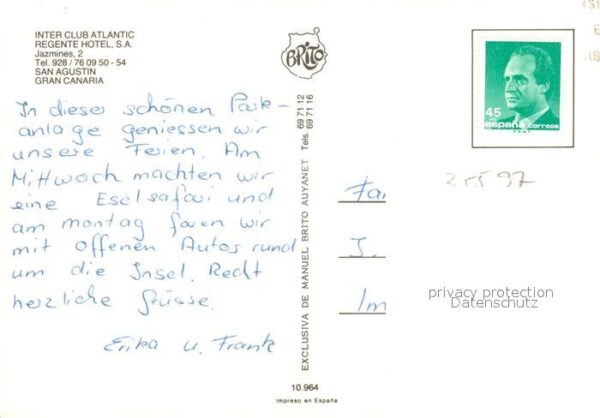 INTER CLUB ATLANTIC
REGENTE HOTEL, S.A.
Jazmines, 2
Tel. 928 / 76 09 50 - 54
SAN AGUSTIN
GRAN CANARIA
BRITO
In dieser schönen Park-
anlage geniessen wir
unsere Ferien. Am
Mittwoch machten wir
eine Eselsafari und
am montag faren wir
mit offenen Autos rund
um die Insel. Recht
herzliche Grüsse.
Erika u. Frank
EXCLUSIVA DE MANUEL BRITO AUYANET Tels. 69 71 12
69 71 16
10.964
Impreso en España
45
españa correos
Fa
J.
Im
privacy protection
Datenschutz